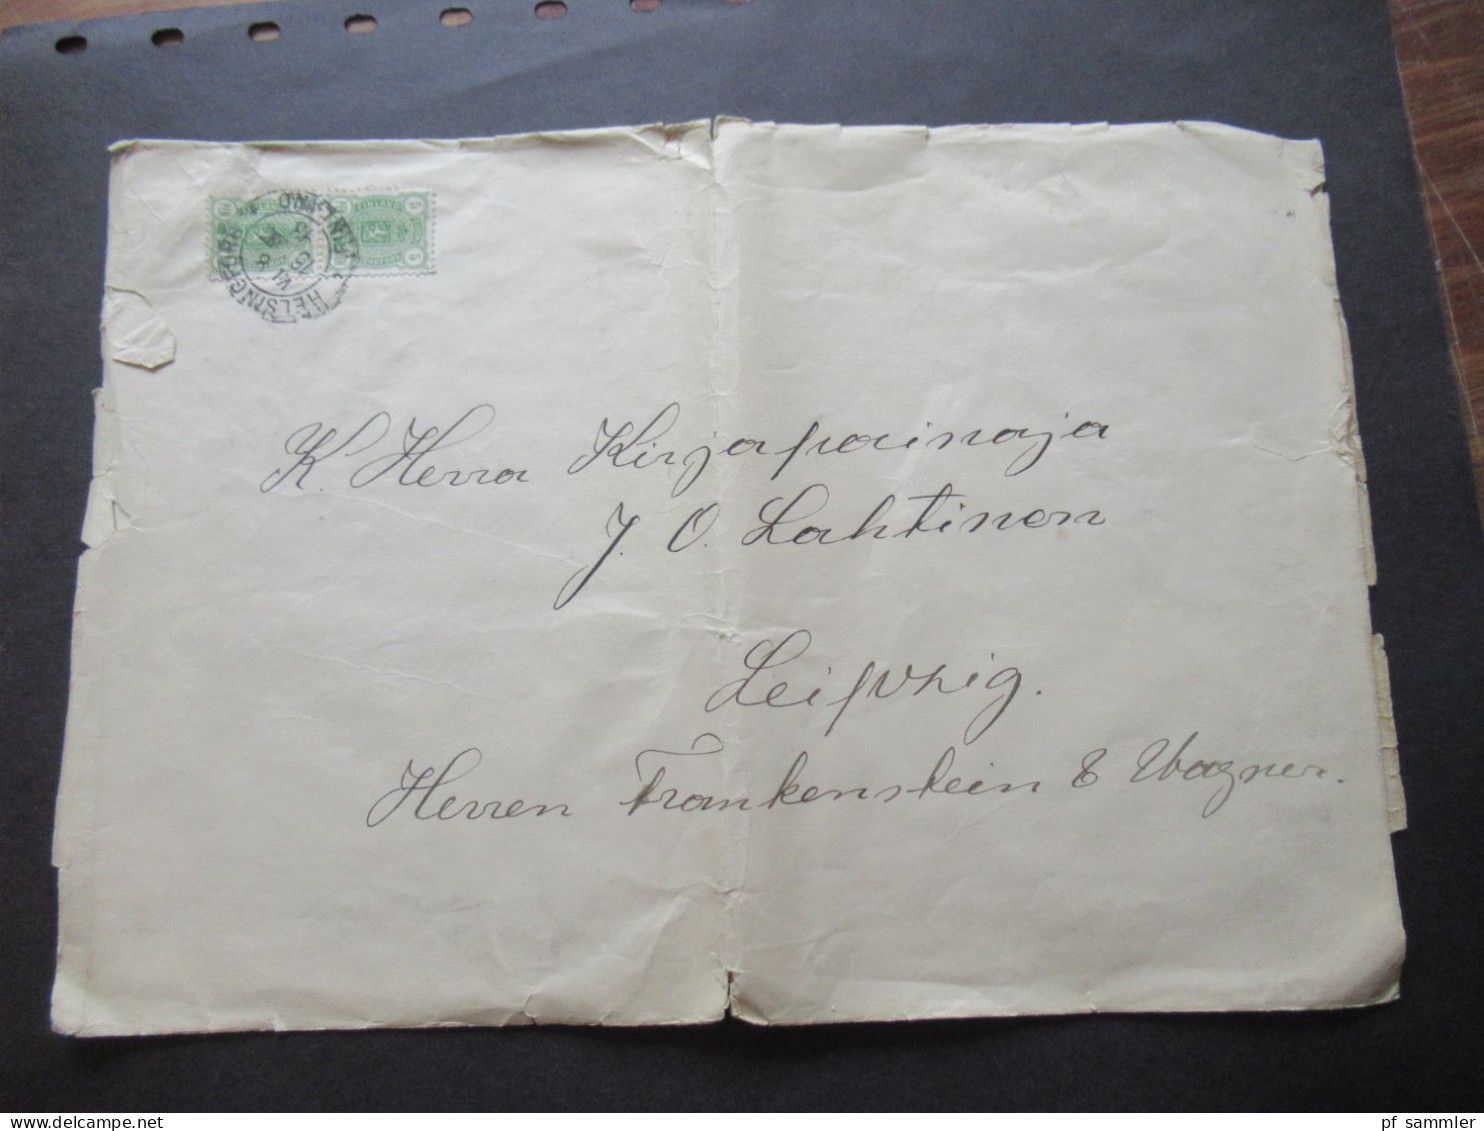 HELSINGFORS
FINLAND
FINLAND
5
5
K. Herra Kirjapainaja
J. O. Lahtinen
Leipzig.
Herren Frankenstein & Wagner.
www.delcampe.net
pf sammler